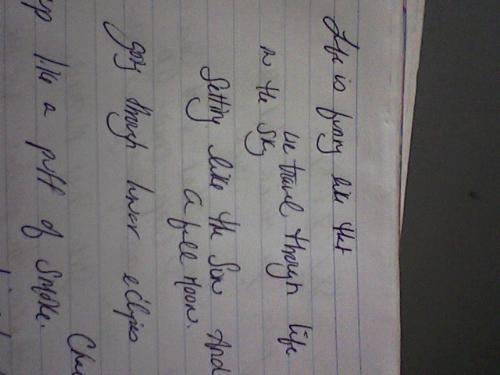 Life is funny like that
we travel through life
in the sky
Setting like the Sun And
a full moon.
going through lunar eclipes
like a puff of smoke.